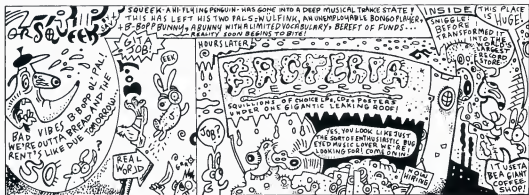 SQUEEK-AH! FLYING PENGUIN-HAS GONE INTO A DEEP MUSICAL TRANCE STATE!
THIS HAS LEFT HIS TWO PALS; WULFINK, AN UNEMPLOYABLE BONGO PLAYER,
+ B-BOPP BUNNY, A BUNNY WITH A LIMITED VOCABULARY, BEREFT OF FUNDS...
REALITY SOON BEGINS TO BITE!
BAD VIBE, B-BOP OL' PAL
WE'RE OUTTA BREAD AND THE
RENT'S LIKE DUE TOMORROW!
SO
GIT A
JOB!
EEK
REAL
WORLD
HOURS LATER
JOB?
BACTERIA
RECORDS
SQUILLIONS OF CHOICE LPs, CDs + POSTERS
UNDER ONE GIGANTIC LEAKING ROOF!
YES, YOU LOOK LIKE JUST
THE SORT OF ENTHUSIASTIC BUG
EYED MUSIC LOVER WE'RE
LOOKING FOR! COME ON IN
INSIDE
SNIGGLE!
BEFORE
TRANSFORMED IT
INTO THE
WORLD'S
LARGEST
RECORD
STORE
THIS PLACE
IS
HUGE!
IT USETA
BE A GIANT